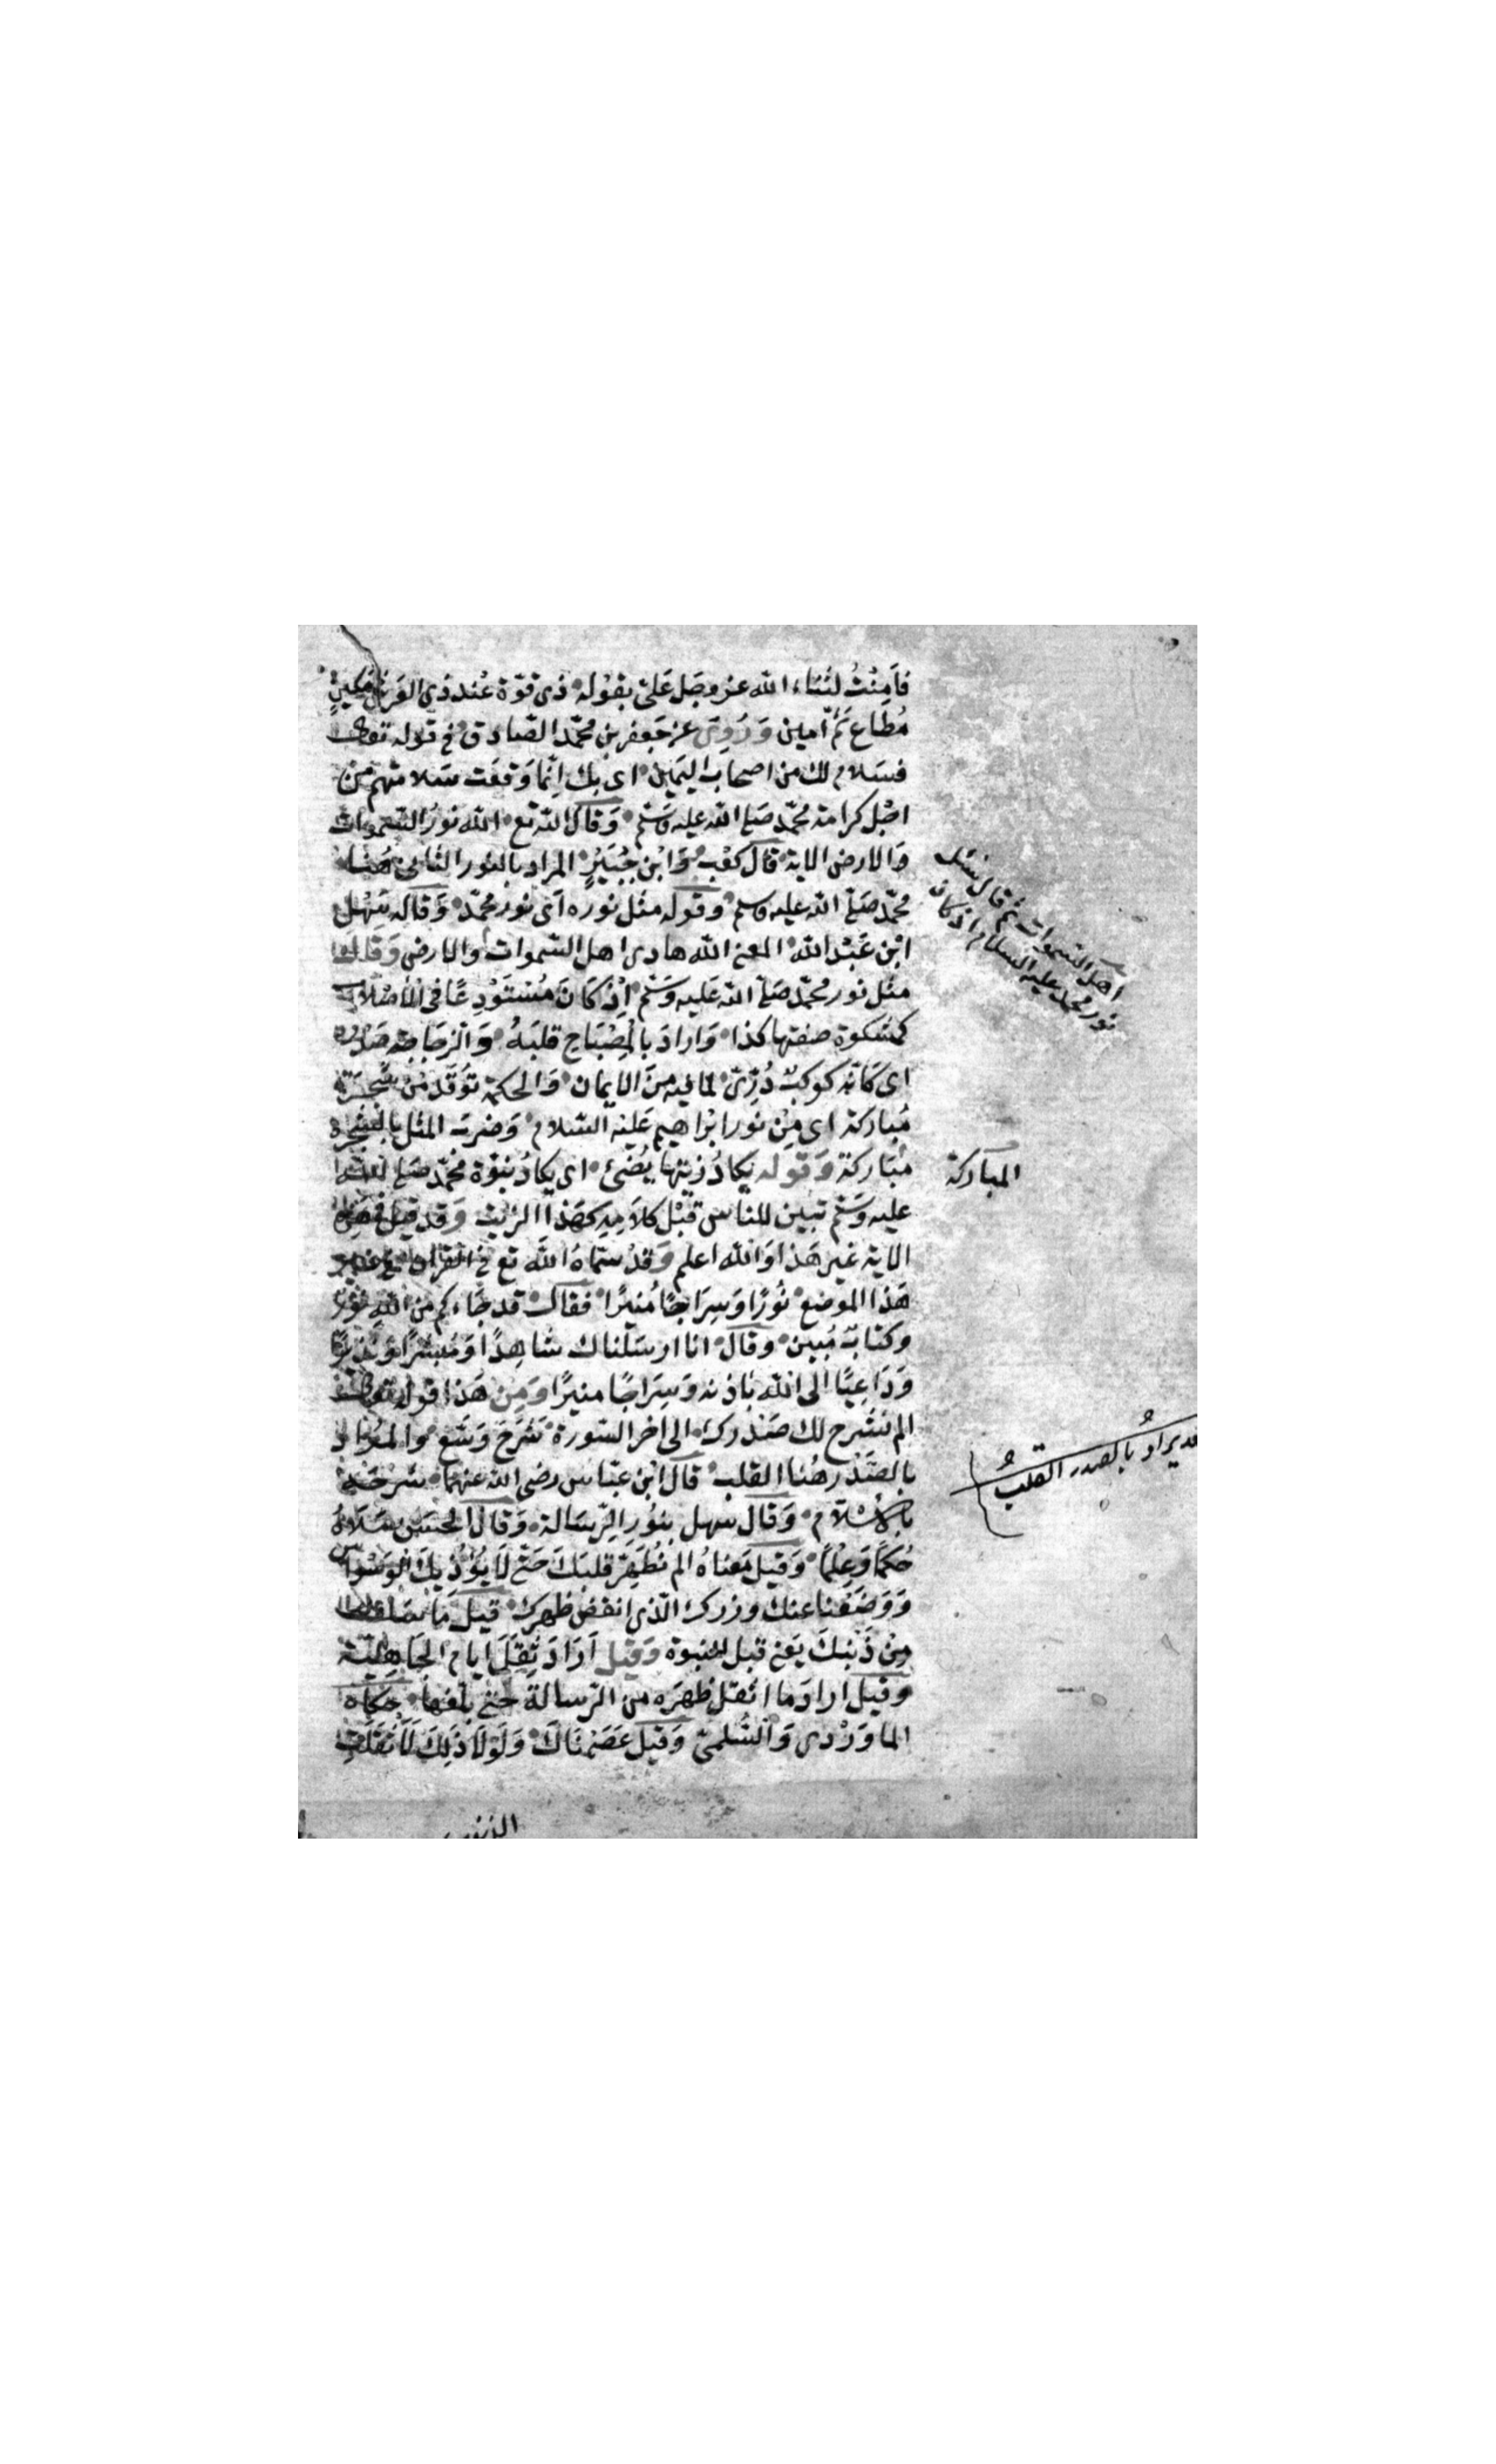 فَأَمِنْتُ لثناء الله عز وجل عَلَيّ بقوله ذى قوّة عند ذى العرش مكين
مُطاع ثَمَّ امين وَرُوِىَ عن جعفر بن محمّد الصّادق فى قوله تعالى
فسَلام لك من اصحاب اليمين اى بك انّما وَقعَت سَلامتهم من
اجْل كرامة محمّد صَلى الله عليه وسَلم وَقال الله تع الله نورُ السّموات
وَالارض الاية قال كعْب وَابْن جُبَيْرٍ المراد بالنور الثانى هُنا
محمّد صَلى الله عليه وسلم وقوله مثل نوره اَى نور محمّد وَقاله سَهْل
ابْن عَبْد الله المعنى الله هادى اهل السّموات والارض وَقال
مثل نور محمّد صَلى الله عَليه وَسَلم اِذْ كَانَ مُسْتَوْدِعًا فى الاَصْلاب
كمشكوة صفتها كذا وَارادَ بالمِصْبَاح قلبَهُ وَالزجاجة صَدْره
اى كَاَنّه كوكبٌ دُرِّىّ لما فيه مِنَ الايمان وَالحكمة تُوقَد مِن شَجرَة
مُباركة اى مِنْ نور ابْراهيم عَليْه السّلام وَضربَ المثل بالشجرة
مبَاركة وَقوله يكادُ زيتها يُضئ اى يكادُ نبوّة محمّد صَلى الله
عليه وَسَلم تبين للناس قبْل كلامِهِ كهَذا الزيت وَقد قيل فى هذه
الاية غير هَذا وَالله اعلم وَقدْ سَمّاهُ الله تع فى القران فى غير
هَذا الموضع نُورًا وَسِرَاجًا مُنيرًا فقال قد جَاءكم من الله نُور
وكتابٌ مُبين وقال انا ارسَلناك شاهِدًا وَمُبشرًا وَنذيرًا
وَدَاعِيًا الى الله باذنه وَسِرَاجًا منيرًا وَمِنْ هَذا قوله تعالى
الم نشرح لك صَدْرك الى اخر السّورة شرَحَ وَسّع والمراد
بالصَّدْر هُنا القلب قال ابْن عبّاس رضى الله عنهما شرَحَهُ
بالاِسْلام وَقال سَهل بنُورِ الرّسَالة وَقال الحسَن مَلاَهُ
حُكمًا وَعِلْمًا وَقيل مَعناهُ الم نُطَهِّر قلبَكَ حَتّى لا يُؤْذِيكَ الوَسْوَاس
وَوَضَعْنا عنك وزرك الّذى انقض ظهرك قيل مَا سَلف
مِنْ ذَنبكَ يَعنى قبل النبوة وَقيل اَرَادَ ثِقلَ ايام الجَاهليّة
وقيل ارادَ ما اثقل ظهرَه من الرّسالة حَتى بلغها حكاه
الماوَرْدى وَالسُّلمىّ وَقيل عَصَمْنَاكَ وَلَوْلاَ ذلِكَ لاَثقَلت
اهل السموات ثم قال مثل
نور محمد عليه السلام اذ كان
المباركة
قد يرادُ بالصدر القلبُ
الذنوب